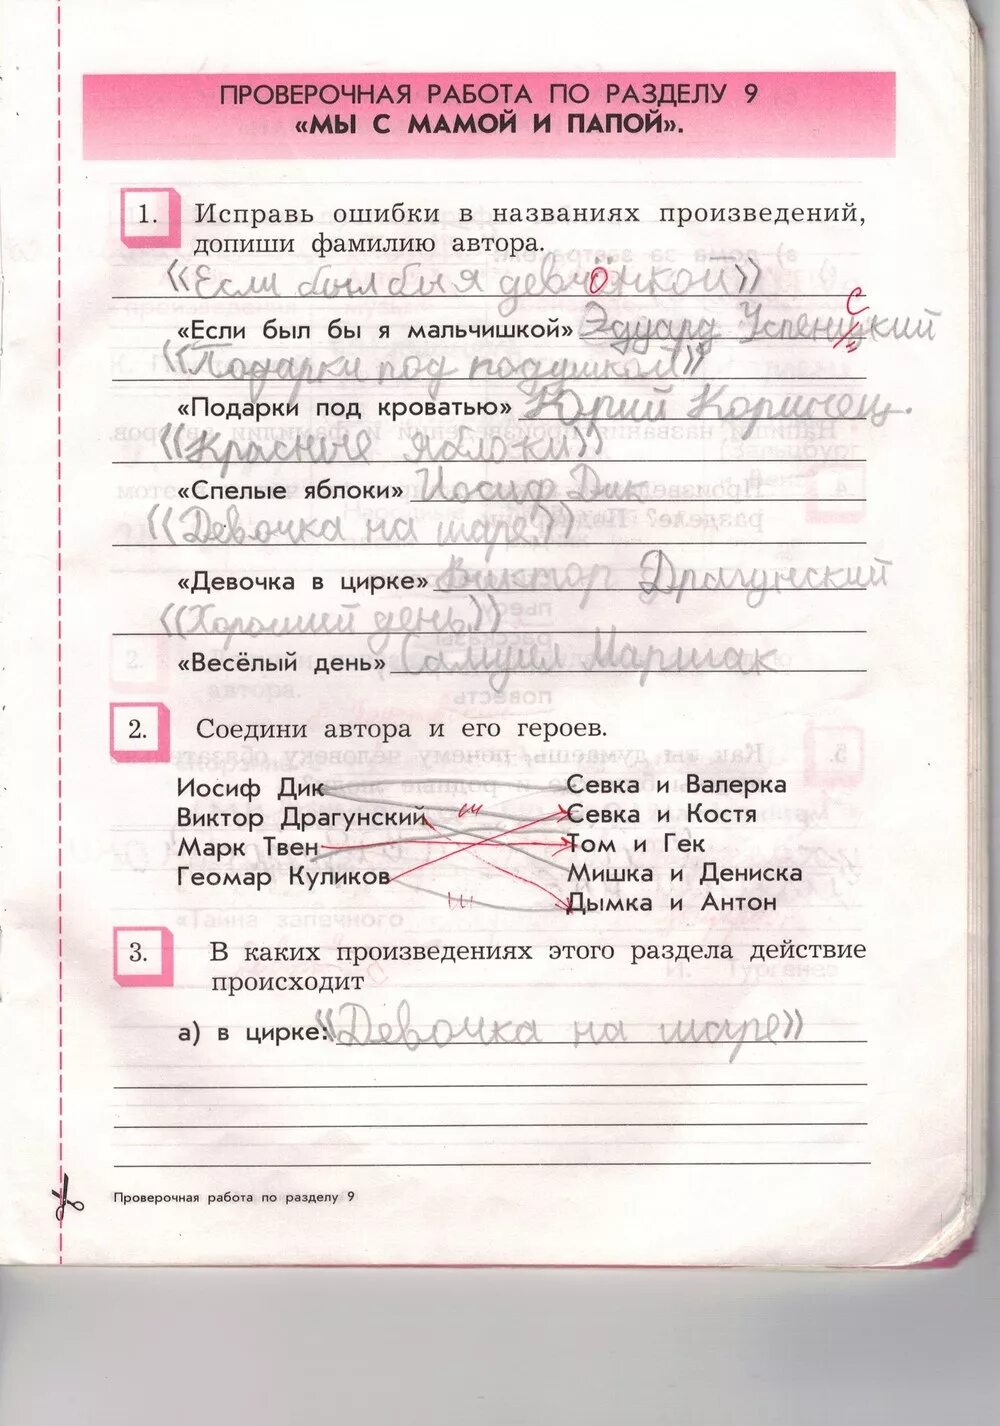 ПРОВЕРОЧНАЯ РАБОТА ПО РАЗДЕЛУ 9
«МЫ С МАМОЙ И ПАПОЙ».
1. Исправь ошибки в названиях произведений,
допиши фамилию автора.
«Если был бы я девчонкой»
«Если был бы я мальчишкой» Эдуард Успеницкий
с
«Подарки под подушкой»
«Подарки под кроватью» Юрий Коринец.
«Красные яблоки»
«Спелые яблоки» Иосиф Дик
«Девочка на шаре»
«Девочка в цирке» Виктор Драгунский
«Хороший день»
«Весёлый день» Самуил Маршак
2. Соедини автора и его героев.
Иосиф Дик Севка и Валерка
Виктор Драгунский Севка и Костя
Марк Твен Том и Гек
Геомар Куликов Мишка и Дениска
Дымка и Антон
3. В каких произведениях этого раздела действие
происходит
а) в цирке: «Девочка на шаре»
Проверочная работа по разделу 9